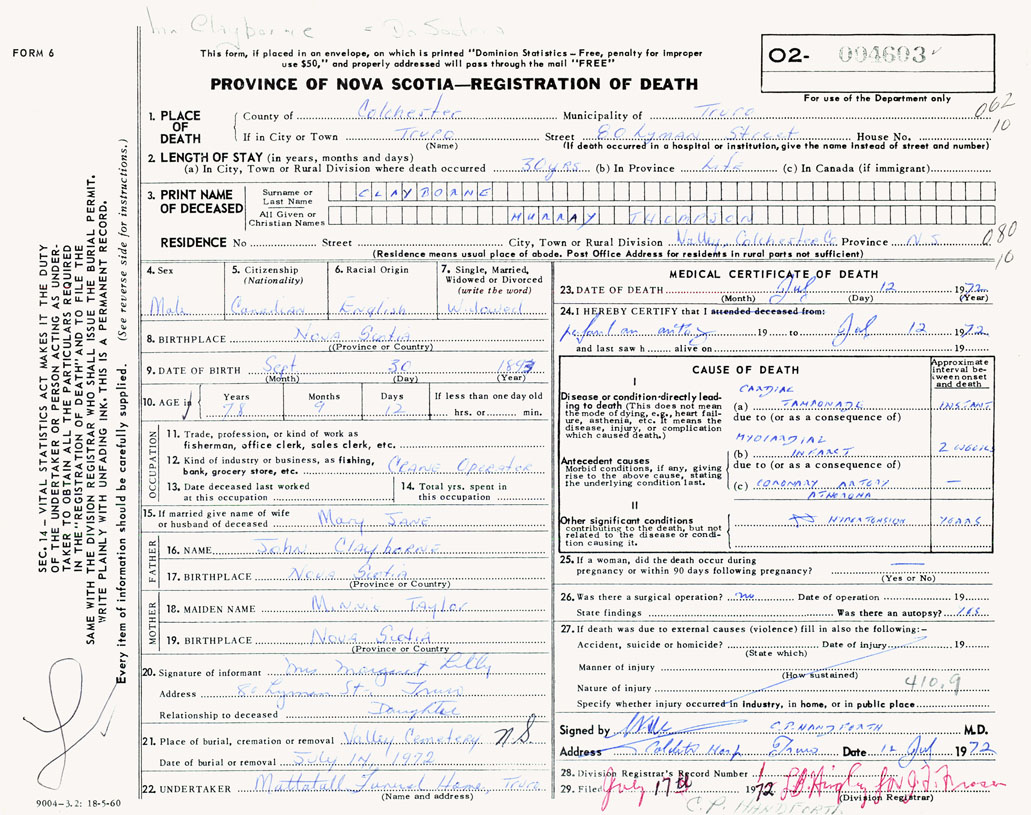 Clayborne = Dr
FORM 6
This form, if placed in an envelope, on which is printed "Dominion Statistics – Free, penalty for improper
use $50," and properly addressed will pass through the mail "FREE"
02- 004603
PROVINCE OF NOVA SCOTIA—REGISTRATION OF DEATH
For use of the Department only
062
10
1. PLACE OF DEATH
County of Colchester Municipality of Truro
If in City or Town Truro Street 80 Lyman Street House No.
(Name) (If death occurred in a hospital or institution, give the name instead of street and number)
2. LENGTH OF STAY (in years, months and days)
(a) In City, Town or Rural Division where death occurred 30 yrs (b) In Province Life (c) In Canada (if immigrant)
3. PRINT NAME OF DECEASED
Surname or Last Name CLAYBORNE
All Given or Christian Names MURRAY THOMPSON
RESIDENCE No Street City, Town or Rural Division Valley, Colchester Co Province N.S.
080
10
(Residence means usual place of abode. Post Office Address for residents in rural parts not sufficient)
4. Sex
Male
5. Citizenship
(Nationality)
Canadian
6. Racial Origin
English
7. Single, Married,
Widowed or Divorced
(write the word)
Widowed
8. BIRTHPLACE Nova Scotia
(Province or Country)
9. DATE OF BIRTH Sept 30 1893
(Month) (Day) (Year)
10. AGE in
Years Months Days If less than one day old
78 9 12 hrs. or min.
OCCUPATION
11. Trade, profession, or kind of work as
fisherman, office clerk, sales clerk, etc.
12. Kind of industry or business, as fishing,
bank, grocery store, etc. Crane Operator
13. Date deceased last worked
at this occupation
14. Total yrs. spent in
this occupation
15. If married give name of wife
or husband of deceased Mary Jane
FATHER
16. NAME John Clayborne
17. BIRTHPLACE Nova Scotia
(Province or Country)
MOTHER
18. MAIDEN NAME Minnie Taylor
19. BIRTHPLACE Nova Scotia
(Province or Country)
20. Signature of informant Mrs Margaret Lilly
Address 80 Lyman St. Truro
Relationship to deceased Daughter
21. Place of burial, cremation or removal Valley Cemetery N.S
Date of burial or removal July 14, 1972
22. UNDERTAKER Mattatall Funeral Home, Truro
(Name and address)
MEDICAL CERTIFICATE OF DEATH
23. DATE OF DEATH Jul 12 1972
(Month) (Day) (Year)
24. I HEREBY CERTIFY that I attended deceased from:
19 to Jul 12 1972
and last saw h alive on 19
CAUSE OF DEATH
Approximate
interval be-
tween onset
and death
I
Disease or condition directly lead-
ing to death (This does not mean
the mode of dying, e.g., heart fail-
ure, asthenia, etc. It means the
disease, injury, or complication
which caused death.)
CARDIAC
(a) TAMPONADE INSTANT
due to (or as a consequence of)
MYOCARDIAL
(b) INFARCT 2 WEEKS
Antecedent causes
Morbid conditions, if any, giving
rise to the above cause, stating
the underlying condition last.
due to (or as a consequence of)
(c) CORONARY ARTERY —
ATHEROMA
II
Other significant conditions
contributing to the death, but not
related to the disease or condi-
tion causing it.
HYPERTENSION YEARS
25. If a woman, did the death occur during
pregnancy or within 90 days following pregnancy? —
(Yes or No)
26. Was there a surgical operation? no Date of operation 19
State findings Was there an autopsy? yes
27. If death was due to external causes (violence) fill in also the following:–
Accident, suicide or homicide? Date of injury 19
(State which)
Manner of injury
(How sustained)
Nature of injury 410.9
Specify whether injury occurred in industry, in home, or in public place
Signed by C.P. HANDFORTH M.D.
Address Colch Hosp Truro Date 12 Jul 1972
28. Division Registrar's Record Number
29. Filed July 17th 1972 for J. F. Fraser
(Division Registrar)
C.P. HANDFORTH
9004–3.2: 18-5-60
SEC. 14 – VITAL STATISTICS ACT MAKES IT THE DUTY
OF THE UNDERTAKER OR PERSON ACTING AS UNDER-
TAKER TO OBTAIN ALL THE PARTICULARS REQUIRED
IN THE "REGISTRATION OF DEATH" AND TO FILE THE
SAME WITH THE DIVISION REGISTRAR WHO SHALL ISSUE THE BURIAL PERMIT.
WRITE PLAINLY WITH UNFADING INK. THIS IS A PERMANENT RECORD.
Every item of information should be carefully supplied. (See reverse side for instructions.)